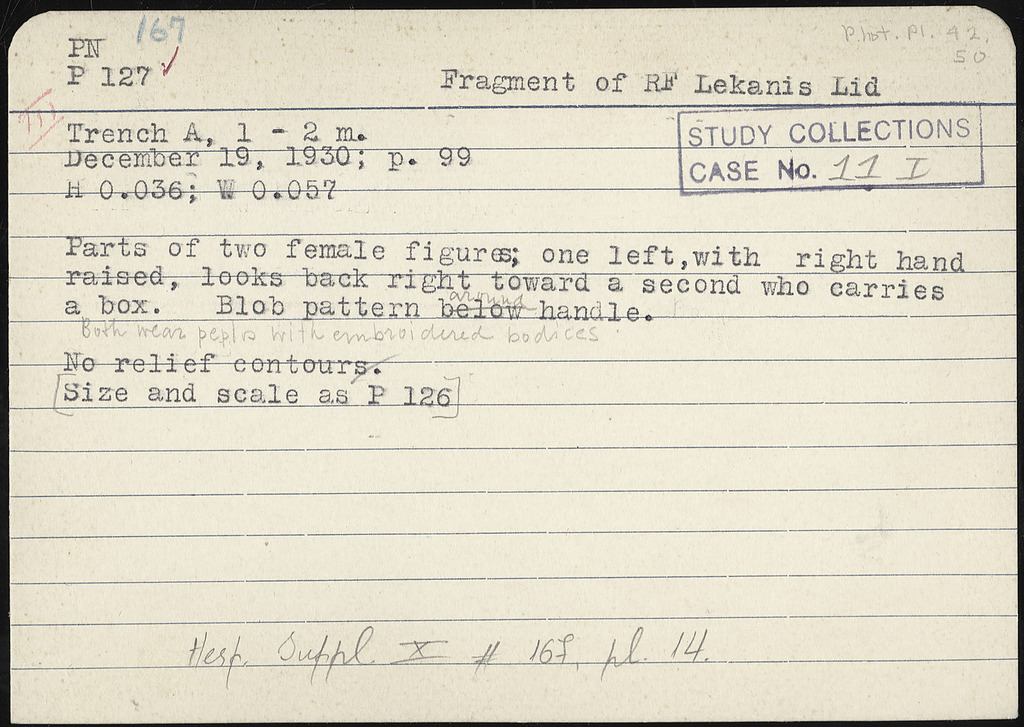 167
Phot. Pl. 42,
50
PN
P 127 ✓
Fragment of RF Lekanis Lid
Trench A, 1 - 2 m.
December 19, 1930; p. 99
H 0.036; W 0.057
STUDY COLLECTIONS
CASE No. 11 I
Parts of two female figures; one left,with right hand
raised, looks back right toward a second who carries
around
a box. Blob pattern below handle.
Both wear peplos with embroidered bodices
No relief contours.
[Size and scale as P 126]
Hesp. Suppl. X # 167, pl. 14.